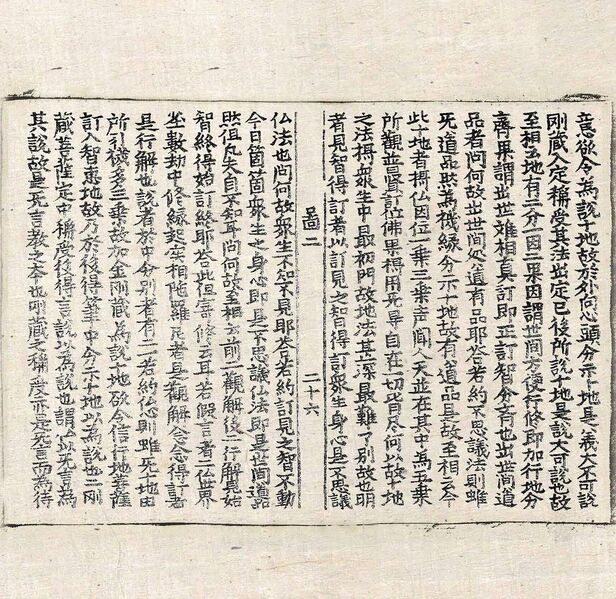 意欲令為說十地故於外向心頭分示十地是義大不可說
剛藏入定稱受其法出定已後所說十地是說大可說也故
至相云地有二分一因二果因謂世間方便行修即加行地分
齊果謂出世離相真訂即正訂智分育也出世間道
品者問何故出世間処道有品耶荅若約不思議法則雖
旡道品然為機緣分示十地故有道品是故至相云今
此十地者攝仏因位一乘三乘声聞人天並在其中為五乘
所觀並晋訂位佛果得用旡导自在一切皆尽何以故十地
之法攝衆生中最初門故地法甚深最難了別故也明
者見智得訂者以訂見之智得訂衆生身心是不思議
啚二 二十六
仏法也問何故衆生不知不見耶荅若約訂見之智不動
今日箇箇衆生之身心即是不思議仏法即是世間道品
然但凡夫自不知耳問何故至相云前二觀解後二行解是始
智終得始訂終耶荅此但寄修云耳若假言者二仏世界
坐數劫中修緣起实相陁羅尼者是觀解念念得訂者
是行解也說者於中分別者有二若約仏心則雖旡十地由
所引機多三乘故加金剛藏為說十地欲令信行地菩薩
訂入智惠地故乃於後得筆中分示十地以為說也二剛
藏菩薩定中稱受後得言說以為說也謂仏以旡言為
其說故是旡言教之本也剛藏之稱受亦是旡言而為待